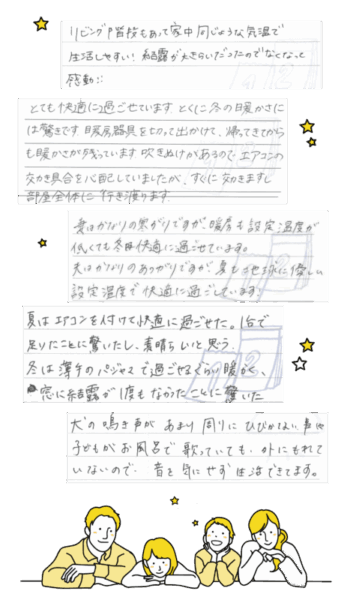 リビング階段もあって家中同じような気温で
生活しやすい! 結露が大きらいだったのでなくなって
感動!!
とても快適に過ごせています。とくに冬の暖かさに
は驚きです。暖房器具を切って出かけて、帰ってきてから
も暖かさが残っています。吹きぬけがあるので エアコンの
効き具合を心配していましたが、すぐに効きますし
部屋全体に 行き渡ります。
妻はかなりの寒がりですが、暖房も設定温度が
低くても冬も快適に過ごせています。
夫はかなりのあつがりですが、夏も地球に優しい
設定温度で快適に過ごしています。
夏はエアコンを付けて快適に過ごせた。1台で
足りたことに驚いたし、素晴らしいと思う。
冬は薄手のパジャマで過ごせるくらい暖かく、
窓に結露が1度もなかったことに驚いた
犬の鳴き声が あまり 周りに ひびかない
子どもが お風呂で 歌っていても、外にもれて
いないので、音を気にせず 生活できてます。